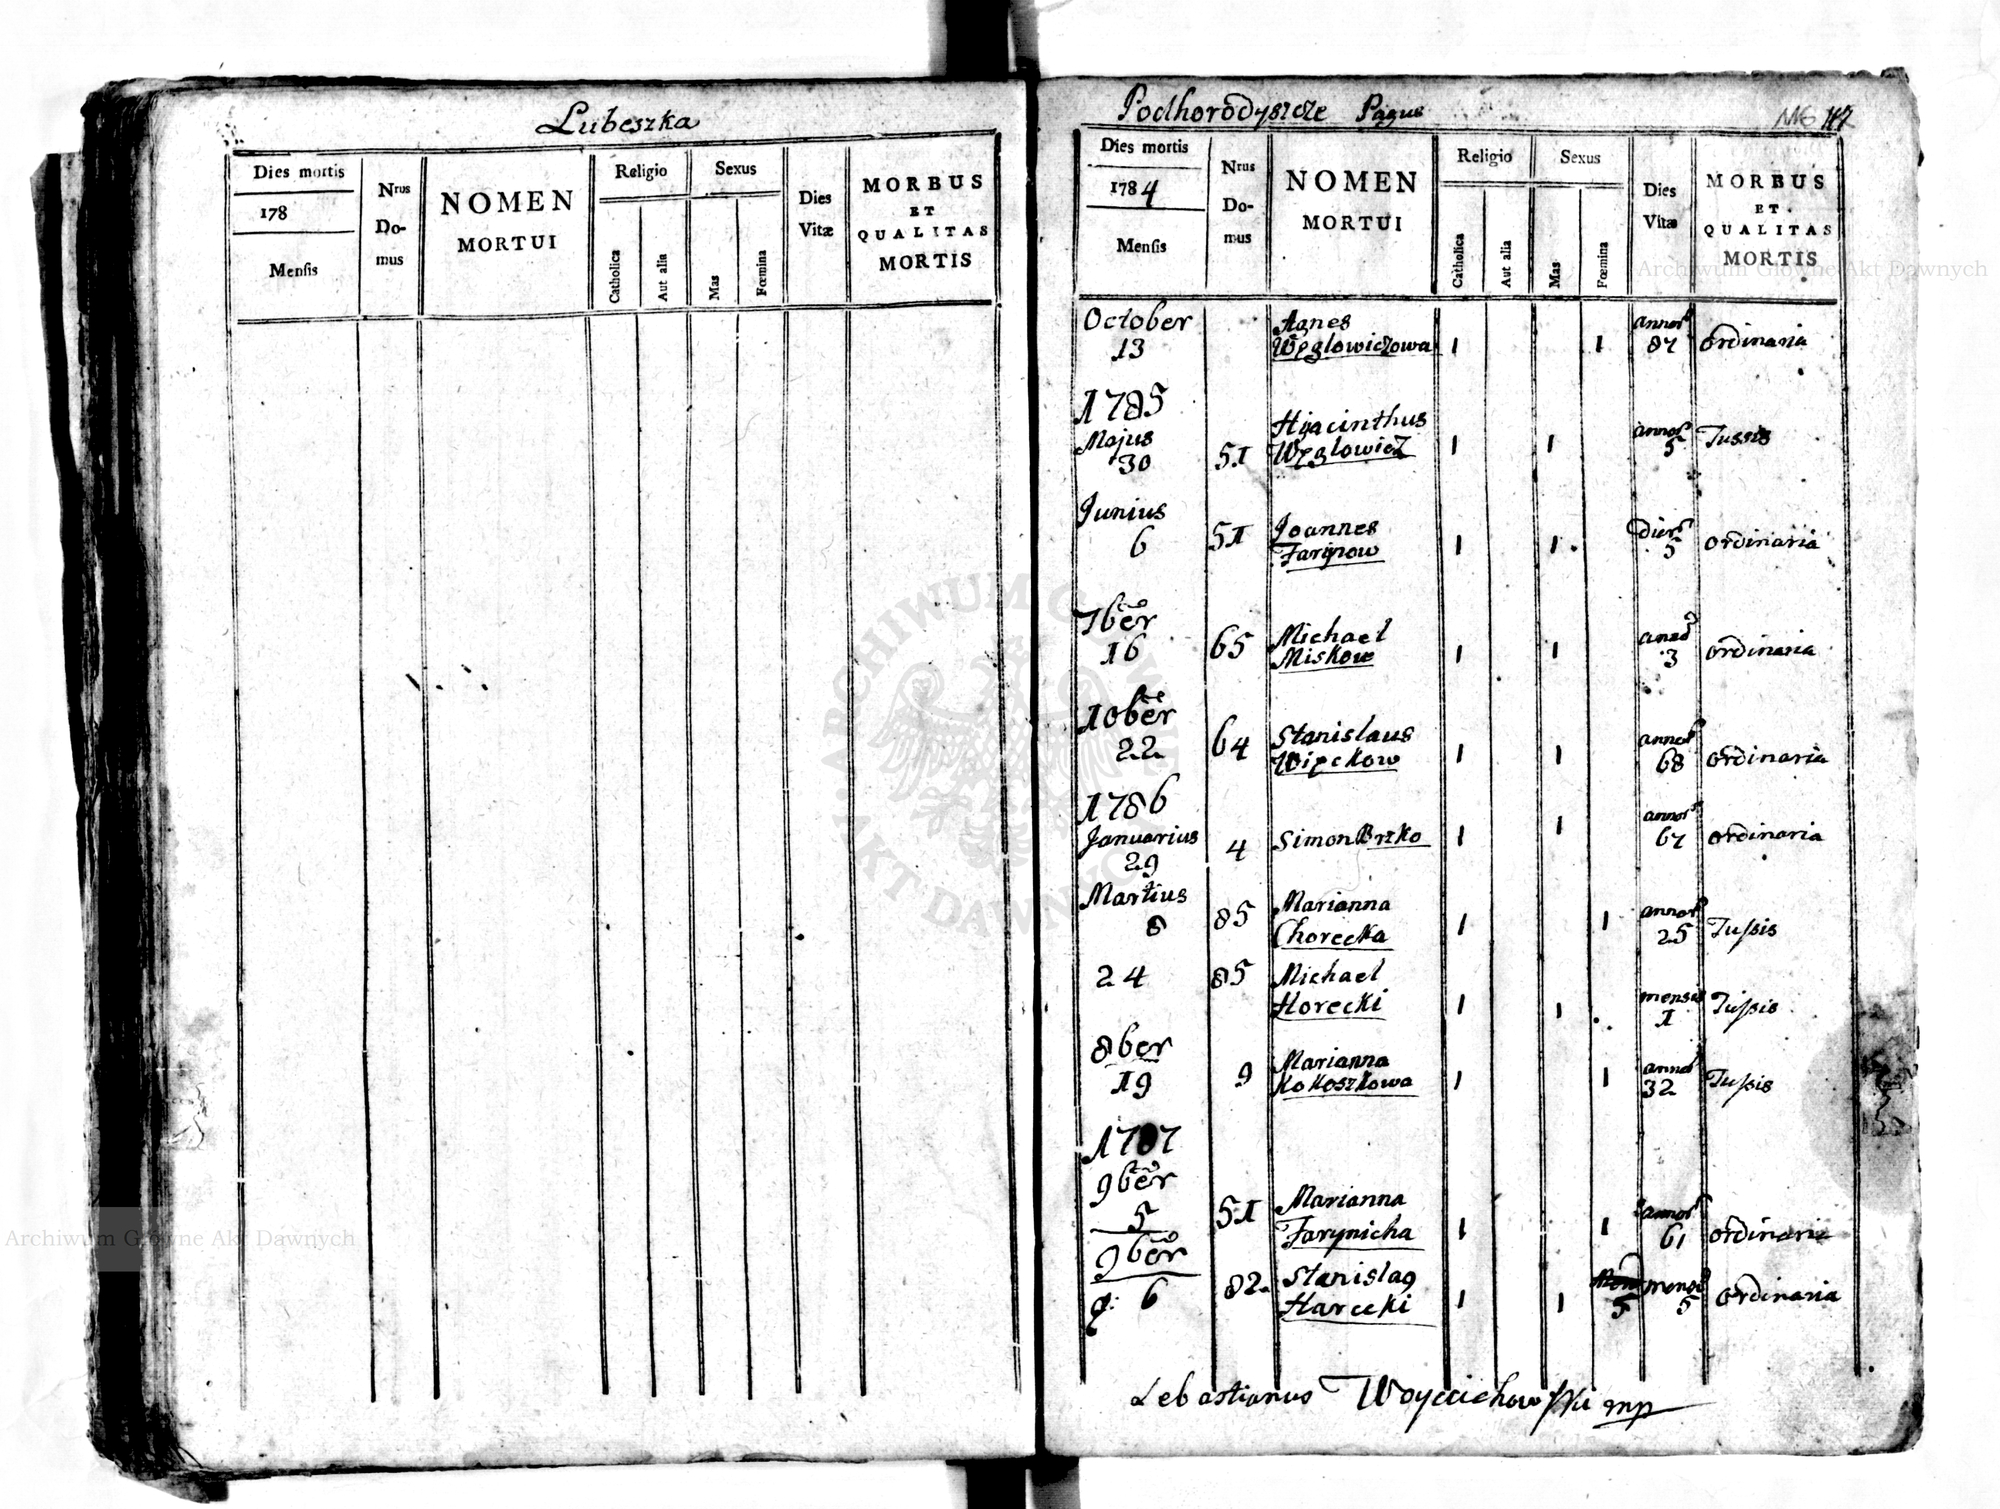 Lubeszka
Dies mortis
178
Mensis
Nrus Do-mus
NOMEN
MORTUI
Religio
Catholica
Aut alia
Sexus
Mas
Fœmina
Dies
Vitæ
MORBUS
ET
QUALITAS
MORTIS
Podhorodyszcze Pagus
116
Dies mortis
1784
Mensis
Nrus
Do-
mus
NOMEN
MORTUI
Religio
Catholica
Aut alia
Sexus
Mas
Fœmina
Dies
Vitæ
MORBUS
ET
QUALITAS
MORTIS
October Agnes annor
13 Węglowiczowa 1 1 87 ordinaria
1785
Majus Hyacinthus annor
30 51 Węglowicz 1 1 5 Tussis
Junius Joannes dier
6 51 Farynow 1 1 5 ordinaria
7ber Michael
16 65 Miskow 1 1 3 ordinaria
10ber Stanislaus annor
22 64 Więckow 1 1 68 ordinaria
1786
Januarius annor
29 4 Simon Brzko 1 1 67 ordinaria
Martius Marianna annor
8 85 Chorecka 1 1 25 Tussis
24 85 Michael mensis
Horecki 1 1 1 Tussis
8ber Marianna annor
19 9 Kokoszkowa 1 1 32 Tussis
1787
9ber Marianna annor
5 51 Farynicha 1 1 61 ordinaria
9ber Stanislag
6 82 Harecki 1 1 5 5 ordinaria
Sebastianus Woyciechowski mp
Archiwum Główne Akt Dawnych
Archiwum Główne Akt Dawnych
ARCHIWUM GŁÓWNE AKT DAWNYCH